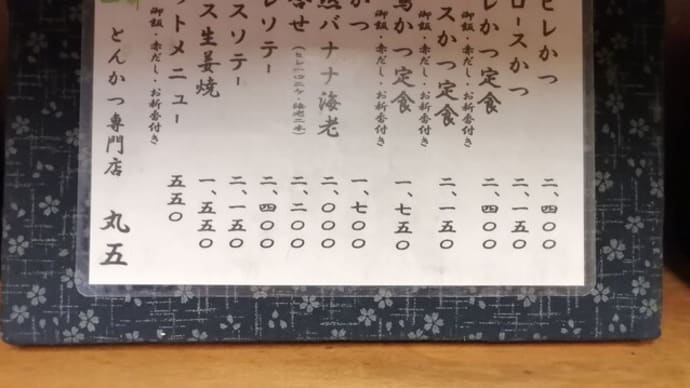 ヒレかつ 二、四〇〇
ロースかつ 二、一五〇
レかつ定食 二、四〇〇
御飯・赤だし・お新香付き
スかつ定食 二、一五〇
御飯・赤だし・お新香付き
かつ定食 一、七五〇
御飯・赤だし・お新香付き
かつ 一、七〇〇
バナナ海老 二、〇〇〇
合せ 二、二〇〇
レソテー 二、四〇〇
スソテー 二、一五〇
ス生姜焼 一、五五〇
ットメニュー 五五〇
御飯・赤だし・お新香付き
とんかつ専門店 丸五